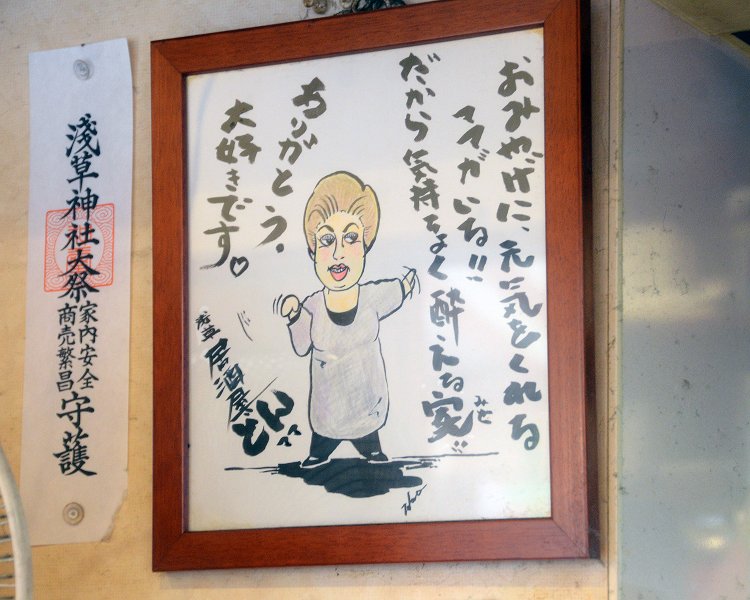 おみやげに、元気をくれる
ママがいる!!
だから気持ちよく酔える家!!
みせ
ありがとう。
大好きです。♡
浅草居酒屋どん
浅草神社大祭
家内安全
商売繁昌
守護